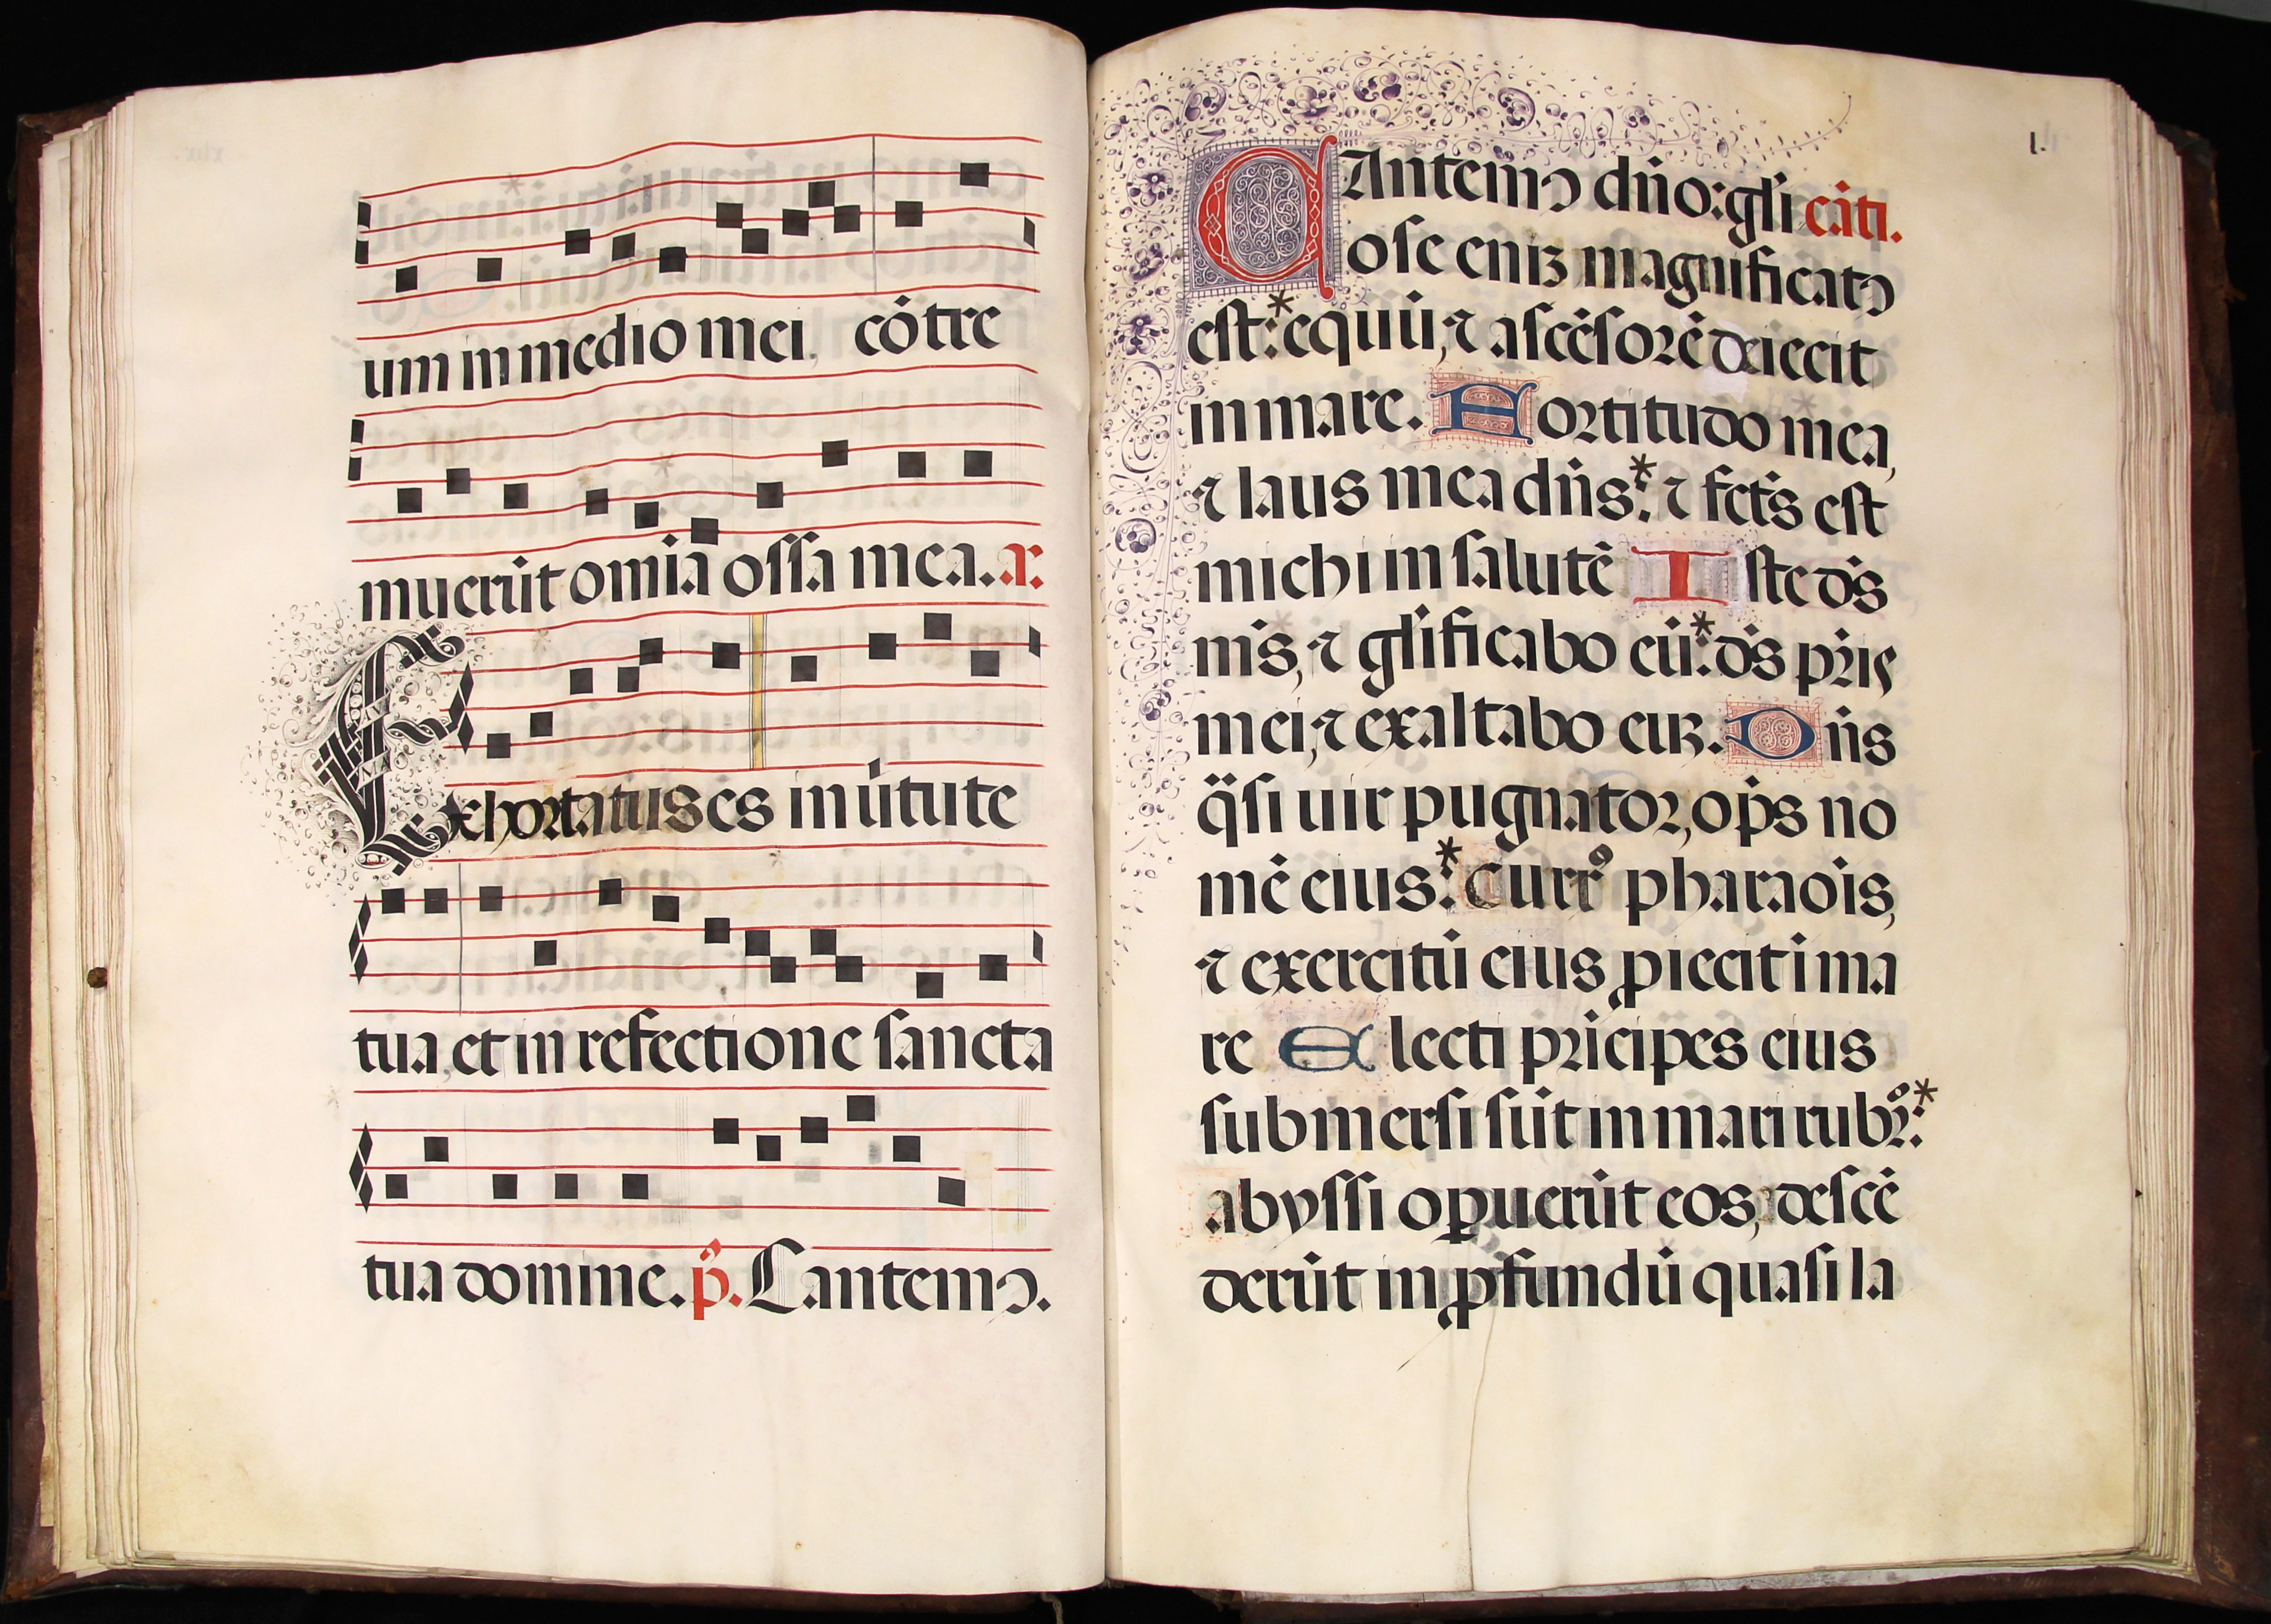 um in medio mei, cõtre
muerũt omĩa ossa mea. a:
Exhortatus es in ũtute
tua, et in refectione sancta
tua domine. p̃. Cantemꝰ.
l.
CAntemꝰ dño: gl̃i cãti.
ose eniꝫ magnificatꝰ
est:* equũ, ⁊ ascẽsorẽ deiecit
in mare. Fortitudo mea,
⁊ laus mea dñs:* ⁊ fct̃s est
michi in salutẽ Iste dẽs
m̃s, ⁊ gl̃ificabo eũ:* dẽs pr̃is
mei, ⁊ exaltabo euꝫ. Dñs
q̃si uir pugnator, op̃s no
mẽ eius:* Currº pharaõis,
⁊ exercitũ eius ꝓiecit i ma
re Electi prĩcipes eius
submersi sũt in mari rubrº:*
abyssi oꝑuerũt eos, descẽ
derũt in ꝓfundũ quasi la